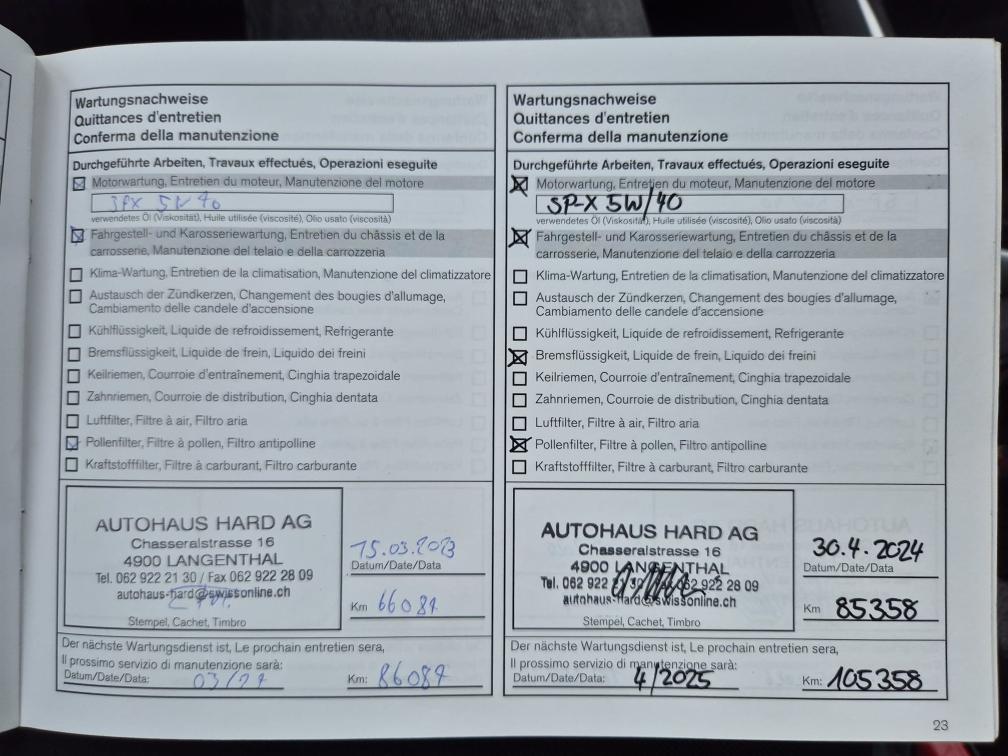 Wartungsnachweise
Quittances d'entretien
Conferma della manutenzione
Durchgeführte Arbeiten, Travaux effectués, Operazioni eseguite
Motorwartung, Entretien du moteur, Manutenzione del motore
SPX 5W40
verwendetes Öl (Viskosität), Huile utilisée (viscosité), Olio usato (viscosità)
Fahrgestell- und Karosseriewartung, Entretien du châssis et de la
carrosserie, Manutenzione del telaio e della carrozzeria
Klima-Wartung, Entretien de la climatisation, Manutenzione del climatizzatore
Austausch der Zündkerzen, Changement des bougies d'allumage,
Cambiamento delle candele d'accensione
Kühlflüssigkeit, Liquide de refroidissement, Refrigerante
Bremsflüssigkeit, Liquide de frein, Liquido dei freini
Keilriemen, Courroie d'entraînement, Cinghia trapezoidale
Zahnriemen, Courroie de distribution, Cinghia dentata
Luftfilter, Filtre à air, Filtro aria
Pollenfilter, Filtre à pollen, Filtro antipolline
Kraftstofffilter, Filtre à carburant, Filtro carburante
AUTOHAUS HARD AG
Chasseralstrasse 16
4900 LANGENTHAL
Tel. 062 922 21 30 / Fax 062 922 28 09
autohaus-hard@swissonline.ch
Stempel, Cachet, Timbro
15.03.2023
Datum/Date/Data
Km 66087
Der nächste Wartungsdienst ist, Le prochain entretien sera,
Il prossimo servizio di manutenzione sarà:
Datum/Date/Data:
Km: 86087
Wartungsnachweise
Quittances d'entretien
Conferma della manutenzione
Durchgeführte Arbeiten, Travaux effectués, Operazioni eseguite
Motorwartung, Entretien du moteur, Manutenzione del motore
SP-X 5W/40
verwendetes Öl (Viskosität), Huile utilisée (viscosité), Olio usato (viscosità)
Fahrgestell- und Karosseriewartung, Entretien du châssis et de la
carrosserie, Manutenzione del telaio e della carrozzeria
Klima-Wartung, Entretien de la climatisation, Manutenzione del climatizzatore
Austausch der Zündkerzen, Changement des bougies d'allumage,
Cambiamento delle candele d'accensione
Kühlflüssigkeit, Liquide de refroidissement, Refrigerante
Bremsflüssigkeit, Liquide de frein, Liquido dei freini
Keilriemen, Courroie d'entraînement, Cinghia trapezoidale
Zahnriemen, Courroie de distribution, Cinghia dentata
Luftfilter, Filtre à air, Filtro aria
Pollenfilter, Filtre à pollen, Filtro antipolline
Kraftstofffilter, Filtre à carburant, Filtro carburante
AUTOHAUS HARD AG
Chasseralstrasse 16
4900 LANGENTHAL
Tel. 062 922 21 30 / Fax 062 922 28 09
autohaus-hard@swissonline.ch
Stempel, Cachet, Timbro
30.4.2024
Datum/Date/Data
Km 85358
Der nächste Wartungsdienst ist, Le prochain entretien sera,
Il prossimo servizio di manutenzione sarà:
Datum/Date/Data: 4/2025
Km: 105358
23